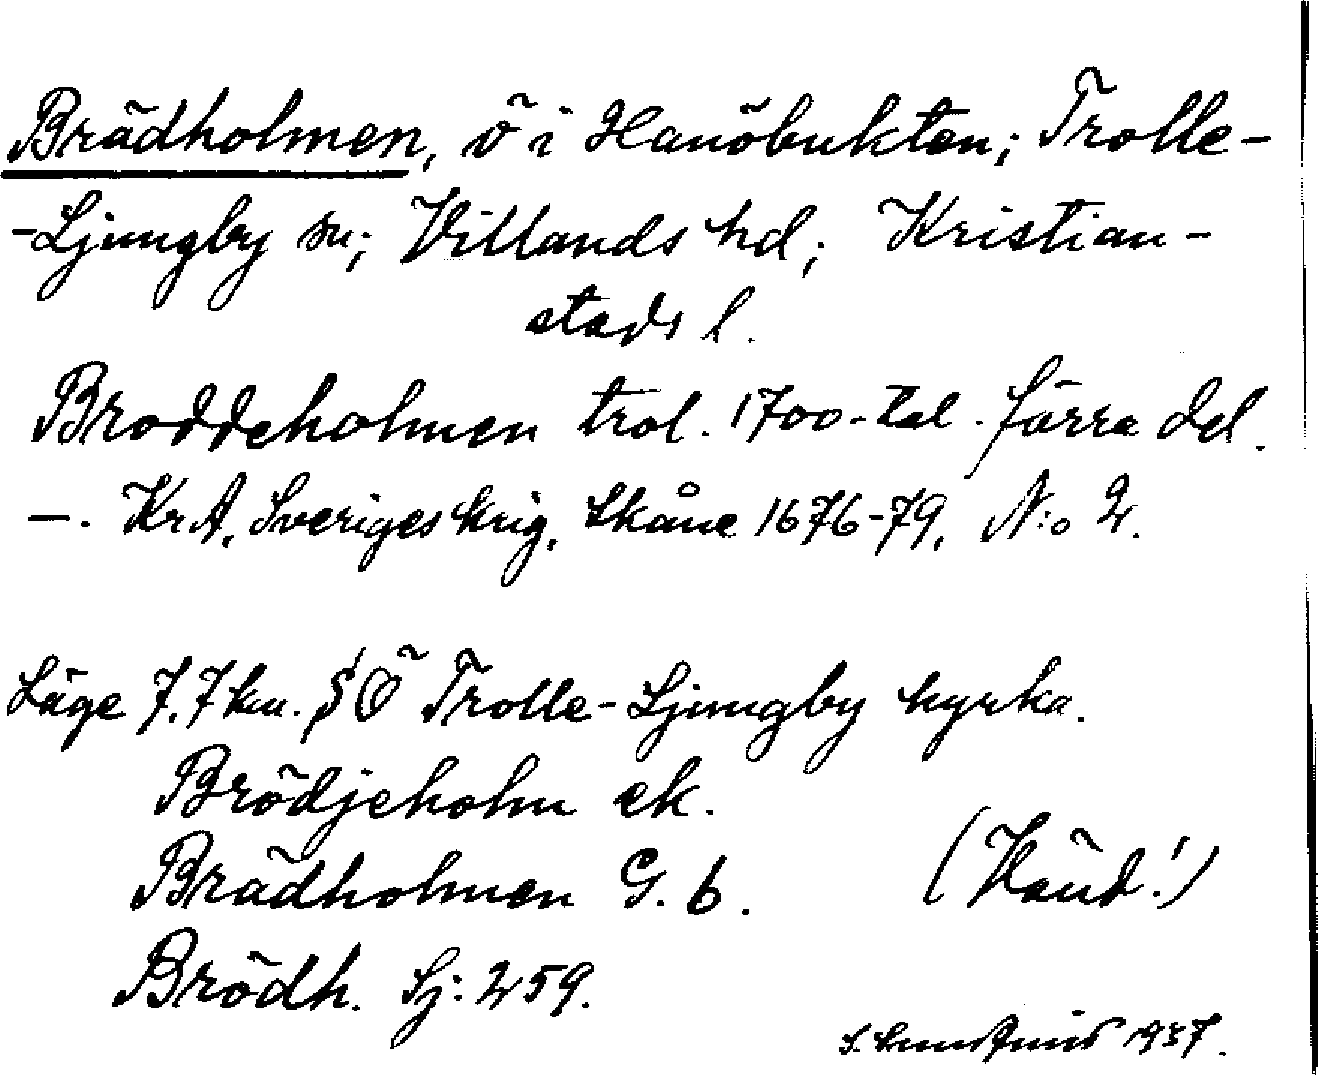 Brädholmen, ö i Hanöbukten; Trolle-
-Ljungby sn; Villands hd; Kristian-
stads l.
Broddeholmen trol. 1700-tal. förra del.
—. KrA, Sveriges krig, Skåne 1676-79, N:o 2.
Läge 7,7 km. SÖ Trolle-Ljungby kyrka.
Brödjeholm ek.
Brädholmen G. b. (Känd!)
Brödh. Sj: 259.
1937.